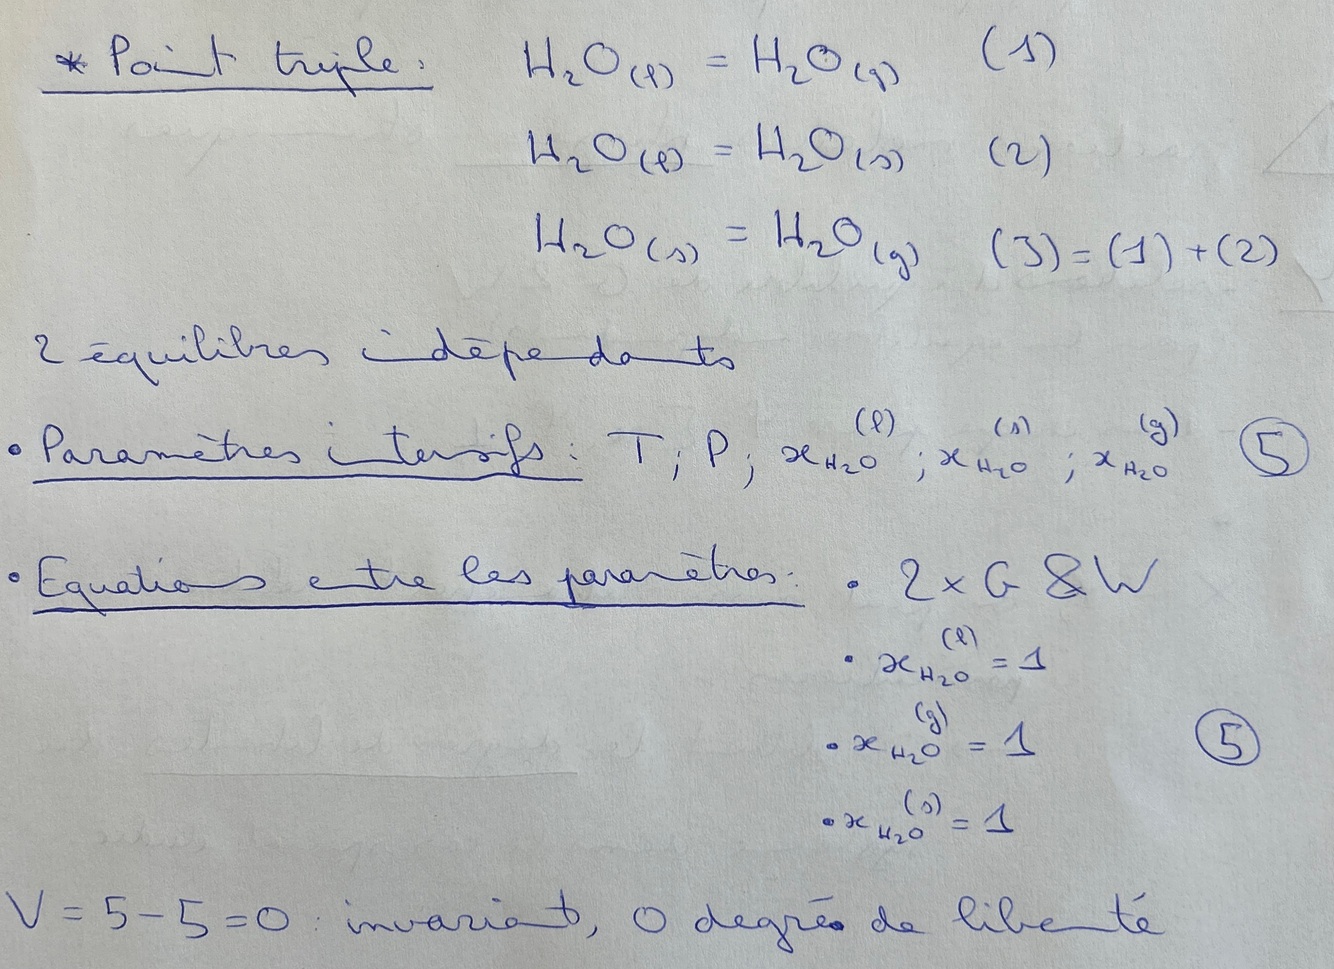 * Point triple : H₂O(l) = H₂O(g) (1)
H₂O(l) = H₂O(s) (2)
H₂O(s) = H₂O(g) (3) = (1) + (2)
2 équilibres indépendants
• Paramètres intensifs : T ; P ; x_H₂O^(l) ; x_H₂O^(s) ; x_H₂O^(g) (5)
• Equations entre les paramètres : • 2 x G & W
• x_H₂O^(l) = 1
• x_H₂O^(g) = 1 (5)
• x_H₂O^(s) = 1
V = 5 - 5 = 0 : invariant, 0 degrés de liberté